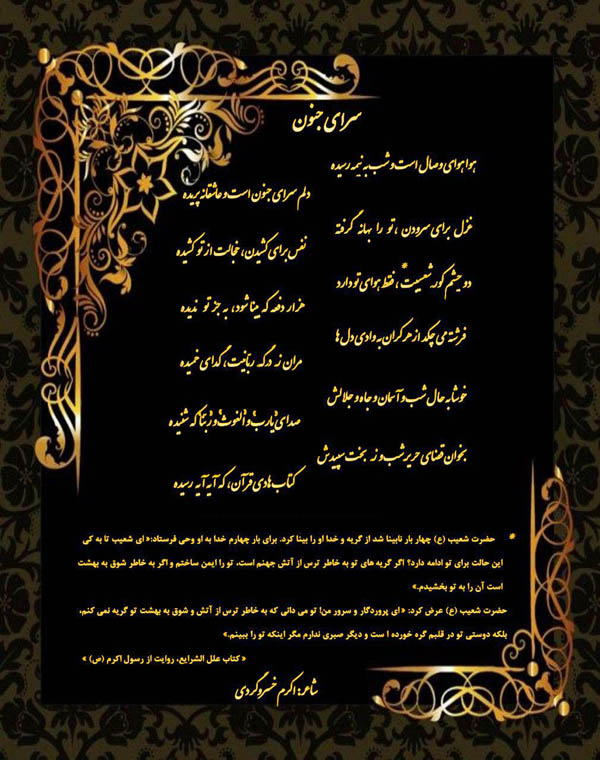 سرای جنون
هوا هوای وصال است و شب به نیمه رسیده
دلم سرای جنون است و عاشقانه پریده
غزل برای سرودن ،تو را بهانه گرفته
نفس برای کشیدن، خجالت از تو کشیده
دو چشم کور شعیبت*، فقط هوای تو دارد
هزار دفعه که بینا شود، به جز تو ندیده
فرشته می چکد از هر کران به وادی دل ها
مران ز درگه ربانیت، گدای خمیده
خوشا به حال شب و آسمان و جاه و جلالش
صدای یارب و الغوث و ربنا که شنیده
بخوان قضای حریر شب و ز بخت سپیدش
کتاب هادی قرآن، که آیه آیه رسیده
* حضرت شعیب (ع) چهار بار نابینا شد از گریه و خدا او را بینا کرد. برای بار چهارم خدا به او وحی فرستاد:« ای شعیب تا به کی
این حالت برای تو ادامه دارد؟ اگر گریه های تو به خاطر ترس از آتش جهنم است، تو را ایمن ساختم و اگر به خاطر شوق به بهشت
است آن را به تو بخشیدم.»
حضرت شعیب (ع) عرض کرد: « ای پروردگار و سرور من! تو می دانی که به خاطر ترس از آتش و شوق به بهشت تو گریه نمی کنم،
بلکه دوستی تو در قلبم گره خورده ا ست و دیگر صبری ندارم مگر اینکه تو را ببینم.»
« کتاب علل الشرایع، روایت از رسول اکرم (ص) »
شاعر: اکرم خسروگردی